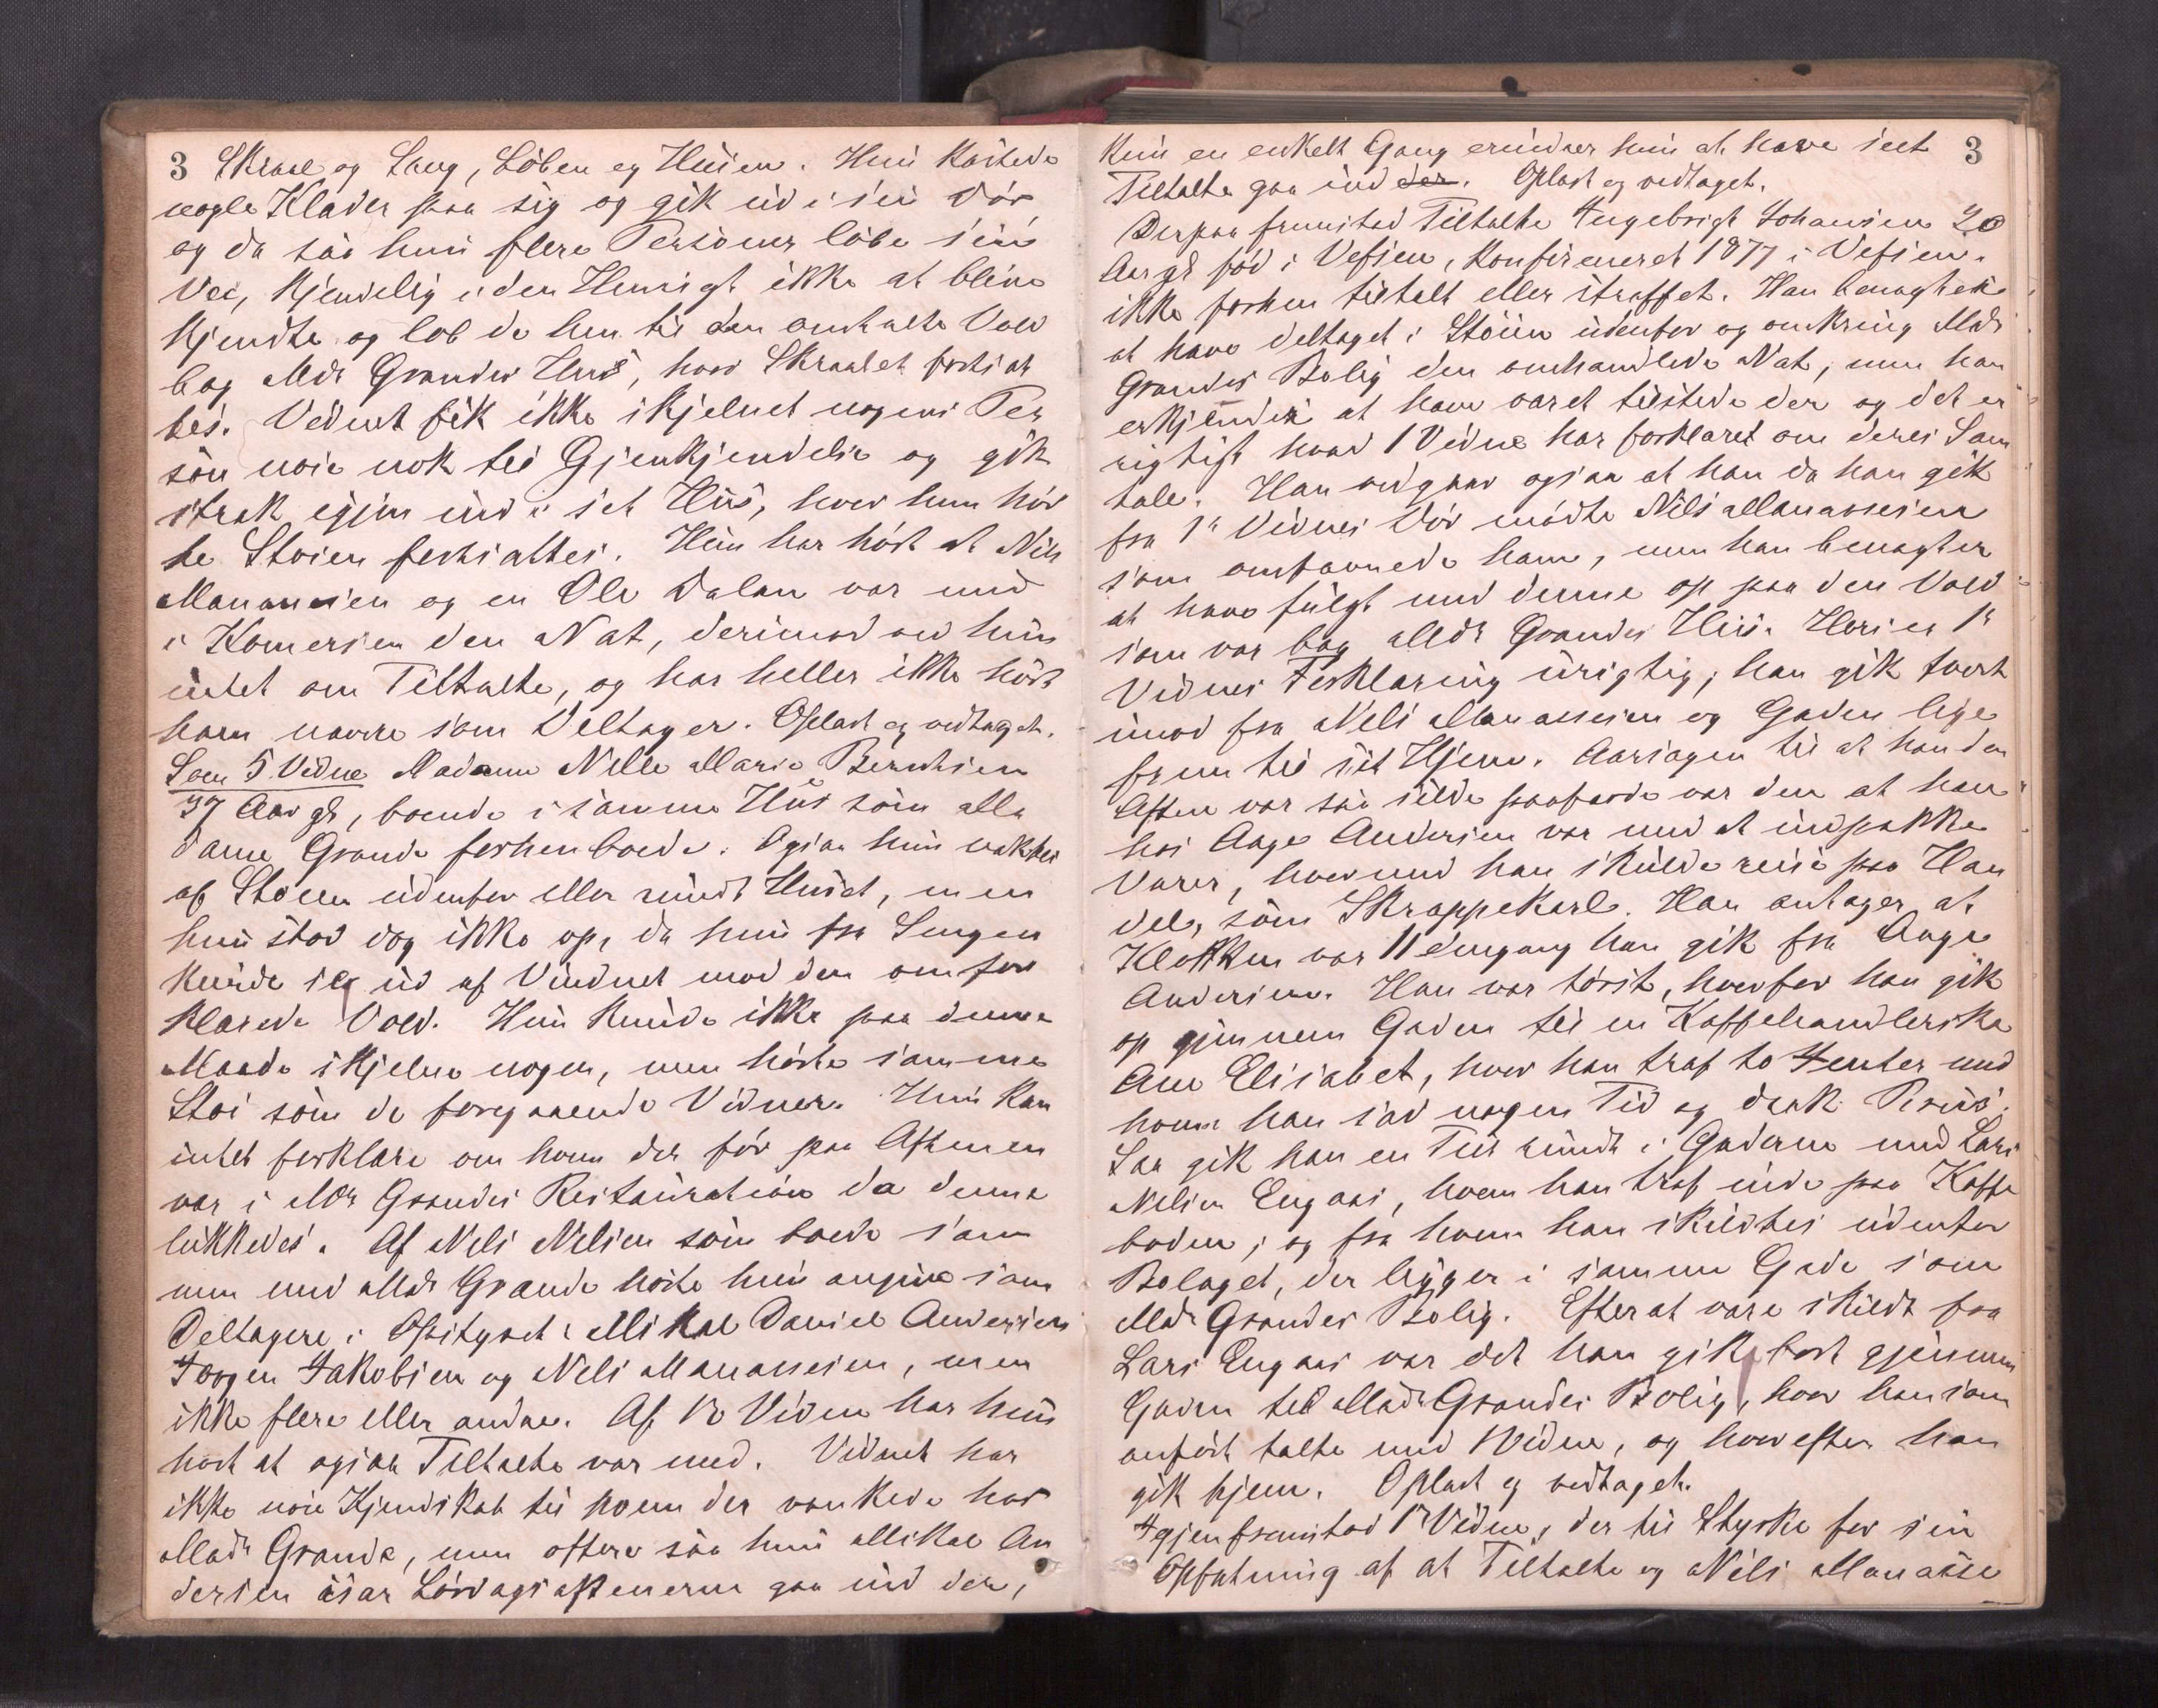 3 Skraal og Sang, Löben og Huien. Hun kastede
nogle Klæder paa sig og gik ud i sin Dør
og da saa hun flere Personer løbe sin
Vei, kjendelig i den Hensigt ikke at blive
kjendte og løb de hen til den omtalte Vold
bag Mdm Grandes Hus, hvor Skraalet fortsat
tes. Vidnet fik ikke skjelnet nogens Per
son nøie nok til Gjenkjendelse og gik
strak igjen ind i sit Hus, hvor hun hør
te Støien fortsattes. Hun har hørt at Nils
Manassen og en Ole Dalen var med
i Komersen den Nat, derimod ved hun
intet om Tiltalte, og har heller ikke hørt
ham nævne som Deltager. Oplæst og vedtaget.
Som 5 Vidne Madame Nelle Marie Berntsen
37 Aar gl, boende i samme Hus som Ma
dame Grande forhen boede. Ogsaa hun vaktes
af Støien udenfor eller rundt Huset, men
hun stod dog ikke op, da hun fra Sengen
kunde se ud af Vinduet mod den omfor
klarede Vold. Hun kunde ikke paa denne
Maade skjelne nogen, men hørte samme
Støi som de foregaaende Vidner. Hun kan
intet forklare om hvem der før paa Aftenen
var i Mdm Grandes Restauration da denne
lukkedes. Af Nels Nelsen som boede sam
men med Mdm Grande hørte hun angive som
Deltagere i Optøiet: Mikal Daniel Andersen
Jørgen Jakobsen og Nels Manassesen, men
ikke flere eller andre. Af 1ste Vidne har hun
hørt at ogsaa Tiltalte var med. Vidnet har
ikke nøie Kjendskab til hvem der vankede hos
Madm Grande, men oftere saa hun Mikal An
dersen især Lørdagsaftenerne gaa ind der,
Kun en enkelt Gang erindrer hun at have seet 3
Tiltalte gaa ind der. Oplæst og vedtaget.
Derpaa fremstod Tiltalte Ingebrigt Johansen 20
Aar gl født i Vefsen, konfirmeret 1877 i Vefsen.
ikke forhen tiltalt eller straffet. Han benægtede
at have deltaget i Støien udenfor og omkring Mdm
Grandes Bolig den omhandlede Nat, men han
erkjender at have været tilstede der og det er
rigtigt hvad 1 Vidne har forklaret om deres Sam
tale. Han vedgaar ogsaa at han da han gik
fra 1ste Vidnes Dør mødte Nils Manassesen
som omfavnede ham, men han benægter
at have fulgt med denne op paa den Vold
som var bag Mdm Grandes Hus. Heri er 1ste
Vidnes Forklaring urigtig; han gik tvert
imod fra Nels Manassesen og Gaden lige
frem til sit Hjem. Aarsagen til at han den
Aften var saa silde paafærde var den at han
hos Aage Andersen var med at indpakke
Varer, hvormed han skulde reise paa Han
del, som Skrappekarl. Han antager at
Klokken var 11 dengang han gik fra Aage
Andersen. Han var tørst, hvorfor han gik
op gjennem Gaden til en Kaffehandlerske
Ane Elisabet, hvor han traf to Jenter med
hvem han sad nogen Tid og drak Brus.
Saa gik han en Tur rundt i Gaderne med Lars
Nelsen Engaas, hvem han traf inde paa Kaffe
boden, og fra hvem han skildtes udenfor
Bolaget, der ligger i samme Gade som
Mdm Grandes Bolig. Efter at være skildt fra
Lars Engaas var det han gik bort gjennem
Gaden til Madm Grandes Bolig, hvor han som
anført talte med 1 Vidne, og hvorefter han
gik hjem. Oplæst og vedtaget.
Igjen fremstod 1ste Vidne, der til Styrke for sin
Opfatning af at Tiltalte og Nils Manasse